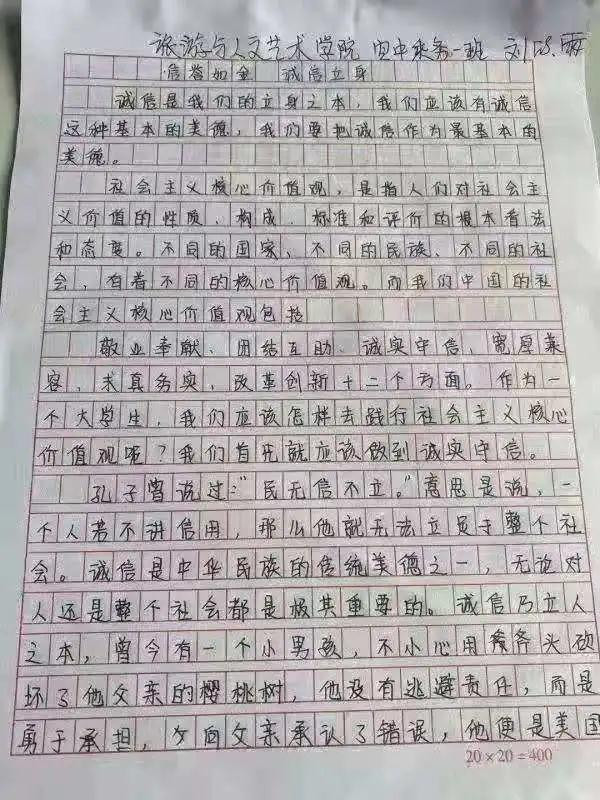 旅游与人文艺术学院 一班 刘 雨
信誉如金 诚信立身
诚信是我们的立身之本,我们应该有诚信
这种基本的美德,我们要把诚信作为最基本的
美德。
社会主义核心价值观,是指人们对社会主
义价值的性质、构成、标准和评价的根本看法
和态度。不同的国家、不同的民族、不同的社
会,有着不同的核心价值观。而我们中国的社
会主义核心价值观包括
敬业奉献、团结互助、诚实守信,宽厚兼
容,求真务实,改革创新十二个方面。作为一
个大学生,我们应该怎样去践行社会主义核心
价值观呢?我们首先就应该做到诚实守信。
孔子曾说过:“民无信不立。”意思是说,一
个人若不讲信用,那么他就无法立足于整个社
会。诚信是中华民族的传统美德之一,无论对
人还是整个社会都是极其重要的。诚信乃立人
之本,曾今有一个小男孩,不小心用斧头砍
坏了他父亲的樱桃树,他没有逃避责任,而是
勇于承担,向父亲承认了错误,他便是美国
20×20=400